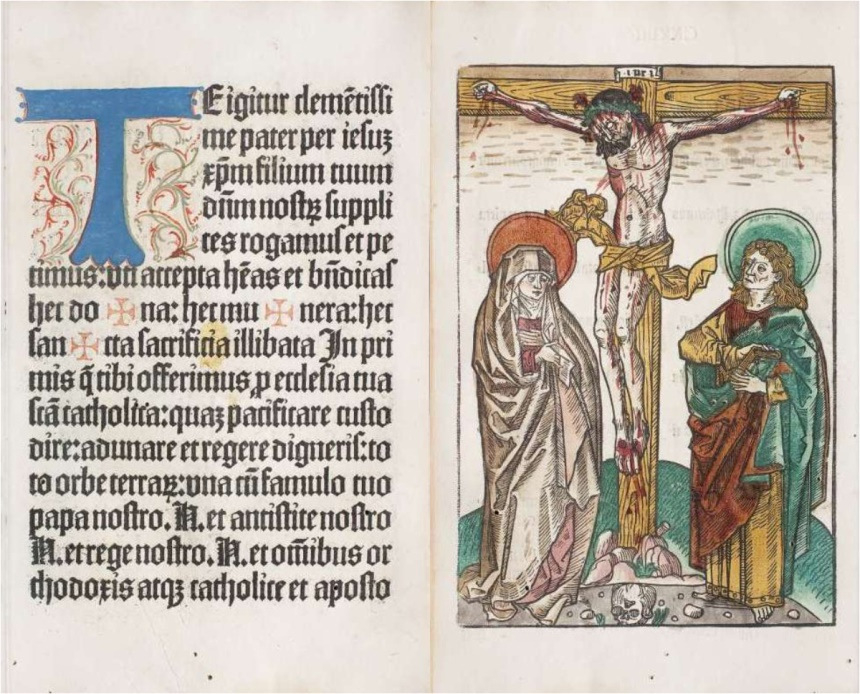 TEigitur clemētissi
me pater per iesuꝫ
xp̄m filium tuum
dn̄m nostꝝ suppli
ces rogamus et pe
timus: vti accepta hēas et bn̄dicas
hec do ✠ na: hec mu ✠ nera: hec
san ✠ cta sacrificia illibata In pri
mis q̄ tibi offerimus ꝓ ecclesia tua
scā catholica: quaꝫ pacificare custo
dire: adunare et regere digneris: to
to orbe terraꝝ: vna cū famulo tuo
papa nostro. N. et antistite nostro
N. et rege nostro. N. et om̄ibus or
thodoxis atqꝫ catholice et aposto